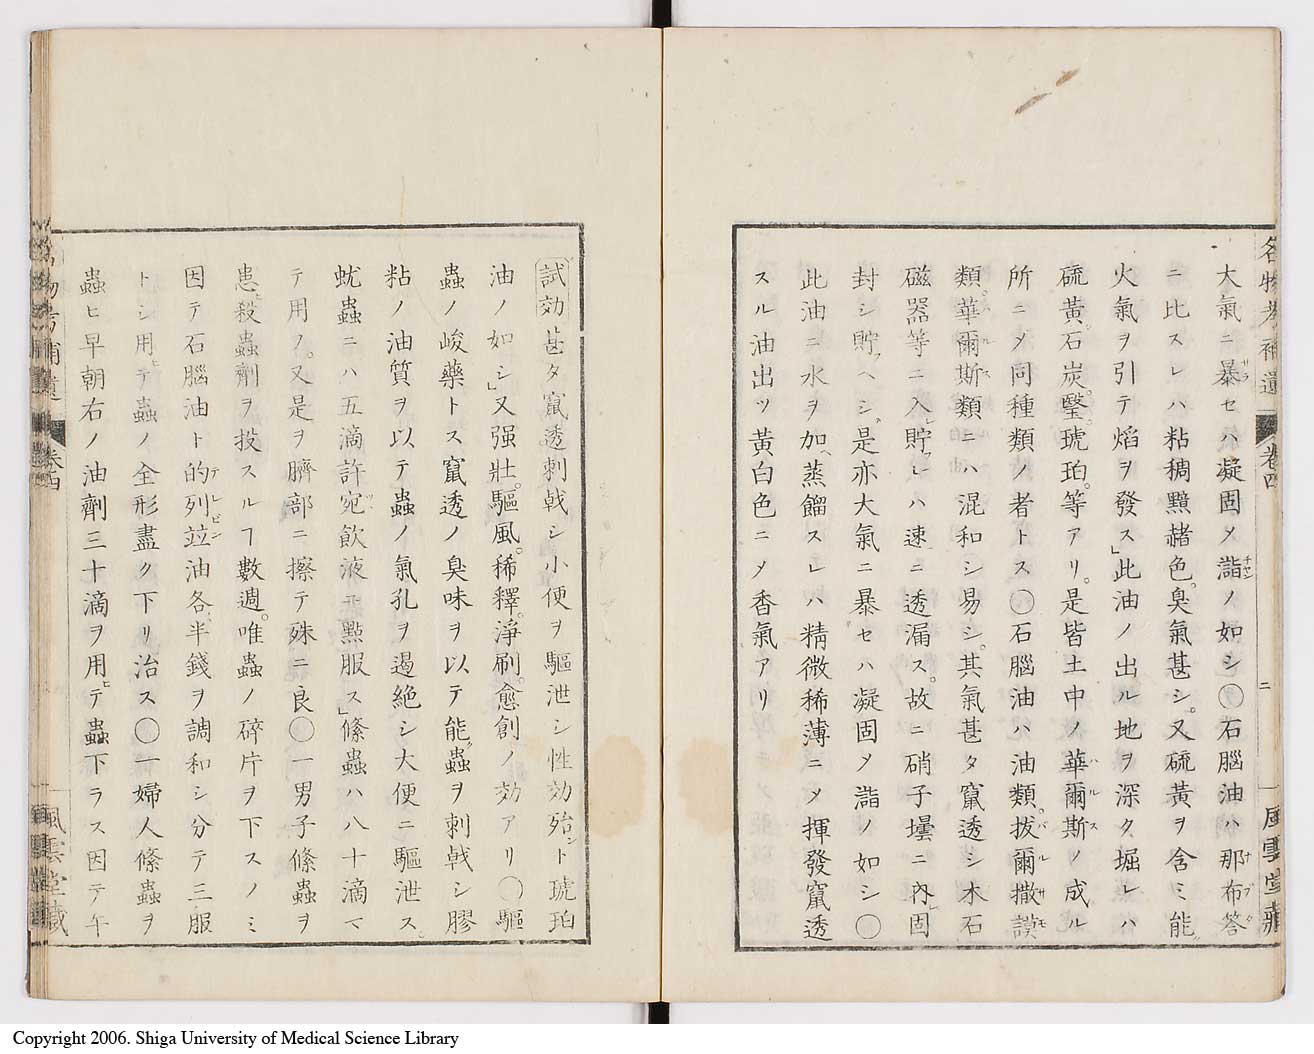 名物考補遺 卷四 二 風雲堂藏
大氣ニ暴セハ凝固メ諧ノ如シ〇石腦油ハ那布答
ニ比スレハ粘稠黯赭色。臭氣甚シ。又硫黃ヲ含ミ能
火氣ヲ引テ焰ヲ發ス」此油ノ出ル地ヲ深ク堀レハ
硫黃。石炭。瑿。琥珀。等アリ。是皆土中ノ華爾斯ノ成ル
所ニメ同種類ノ者トス〇石腦油ハ油類。拔爾撒謨
類。華爾斯類ニハ混和シ易シ。其氣甚タ竄透シ木石
磁器等ニ入貯レハ速ニ透漏ス。故ニ硝子壜ニ內固
封シ貯ヘシ。是亦大氣ニ暴セハ凝固メ諧ノ如シ〇
此油ニ水ヲ加ヘ蒸餾スレハ精微稀薄ニメ揮發竄透
スル油出ツ黃白色ニメ香氣アリ
試効 甚タ竄透刺戟シ小便ヲ驅泄シ性効殆ント琥珀
油ノ如シ」又强壯。驅風。稀釋。淨刷。愈創ノ効アリ〇驅
蟲ノ峻藥トス竄透ノ臭味ヲ以テ能蟲ヲ刺戟シ膠
粘ノ油質ヲ以テ蟲ノ氣孔ヲ遏絶シ大便ニ驅泄ス。
蚘蟲ニハ五滴許宛飲液ニ點服ス」絛蟲ハ八十滴マ
テ用ノ。又是ヲ臍部ニ擦テ殊ニ良〇一男子絛蟲ヲ
患ヒ殺蟲劑ヲ投スルヿ數週。唯蟲ノ碎片ヲ下スノミ
因テ石腦油ト的列竝油各半錢ヲ調和シ分テ三服
トシ用ヒテ蟲ノ全形盡ク下リ治ス〇一婦人絛蟲ヲ
蟲ヒ早朝右ノ油劑三十滴ヲ用ヒテ蟲下ラス因テ午
名物考補遺 卷四 風雲堂藏
Copyright 2006. Shiga University of Medical Science Library